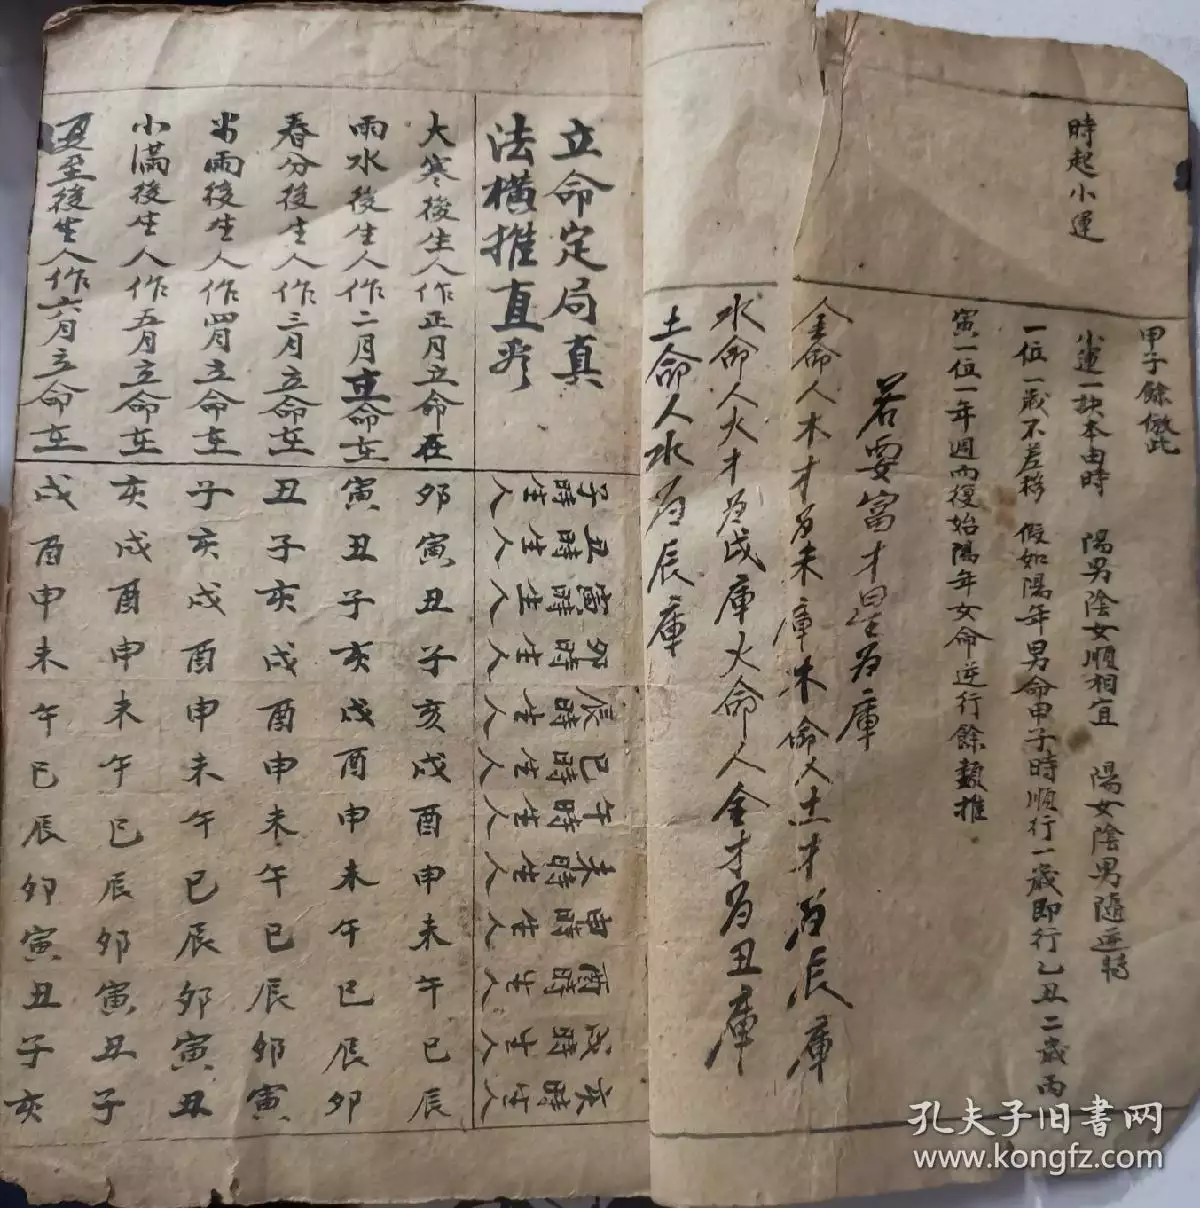 時起小運
甲子餘倣此
小運一訣本由時 陽男陰女順相宜 陽女陰男隨逆轉
一位一歲不差移 假如陽年男命甲子時順行一歲即行乙丑二歲丙
寅一位一年週而復始陽年女命逆行餘類推
若要富才星為庫
金命人木才為未庫木命人土才為辰庫
水命人火才為戌庫火命人金才為丑庫
土命人水為辰庫
立命定局真
法橫推直看
子時生人
丑時生人
寅時生人
卯時生人
辰時生人
巳時生人
午時生人
未時生人
申時生人
酉時生人
戌時生人
亥時生人
大寒後生人作正月立命在 卯寅丑子亥戌酉申未午巳辰
雨水後生人作二月立命在 寅丑子亥戌酉申未午巳辰卯
春分後生人作三月立命在 丑子亥戌酉申未午巳辰卯寅
雨後生人作四月立命在 子亥戌酉申未午巳辰卯寅丑
小滿後生人作五月立命在 亥戌酉申未午巳辰卯寅丑子
夏至後生人作六月立命在 戌酉申未午巳辰卯寅丑子亥
孔夫子旧书网
www.kongfz.com